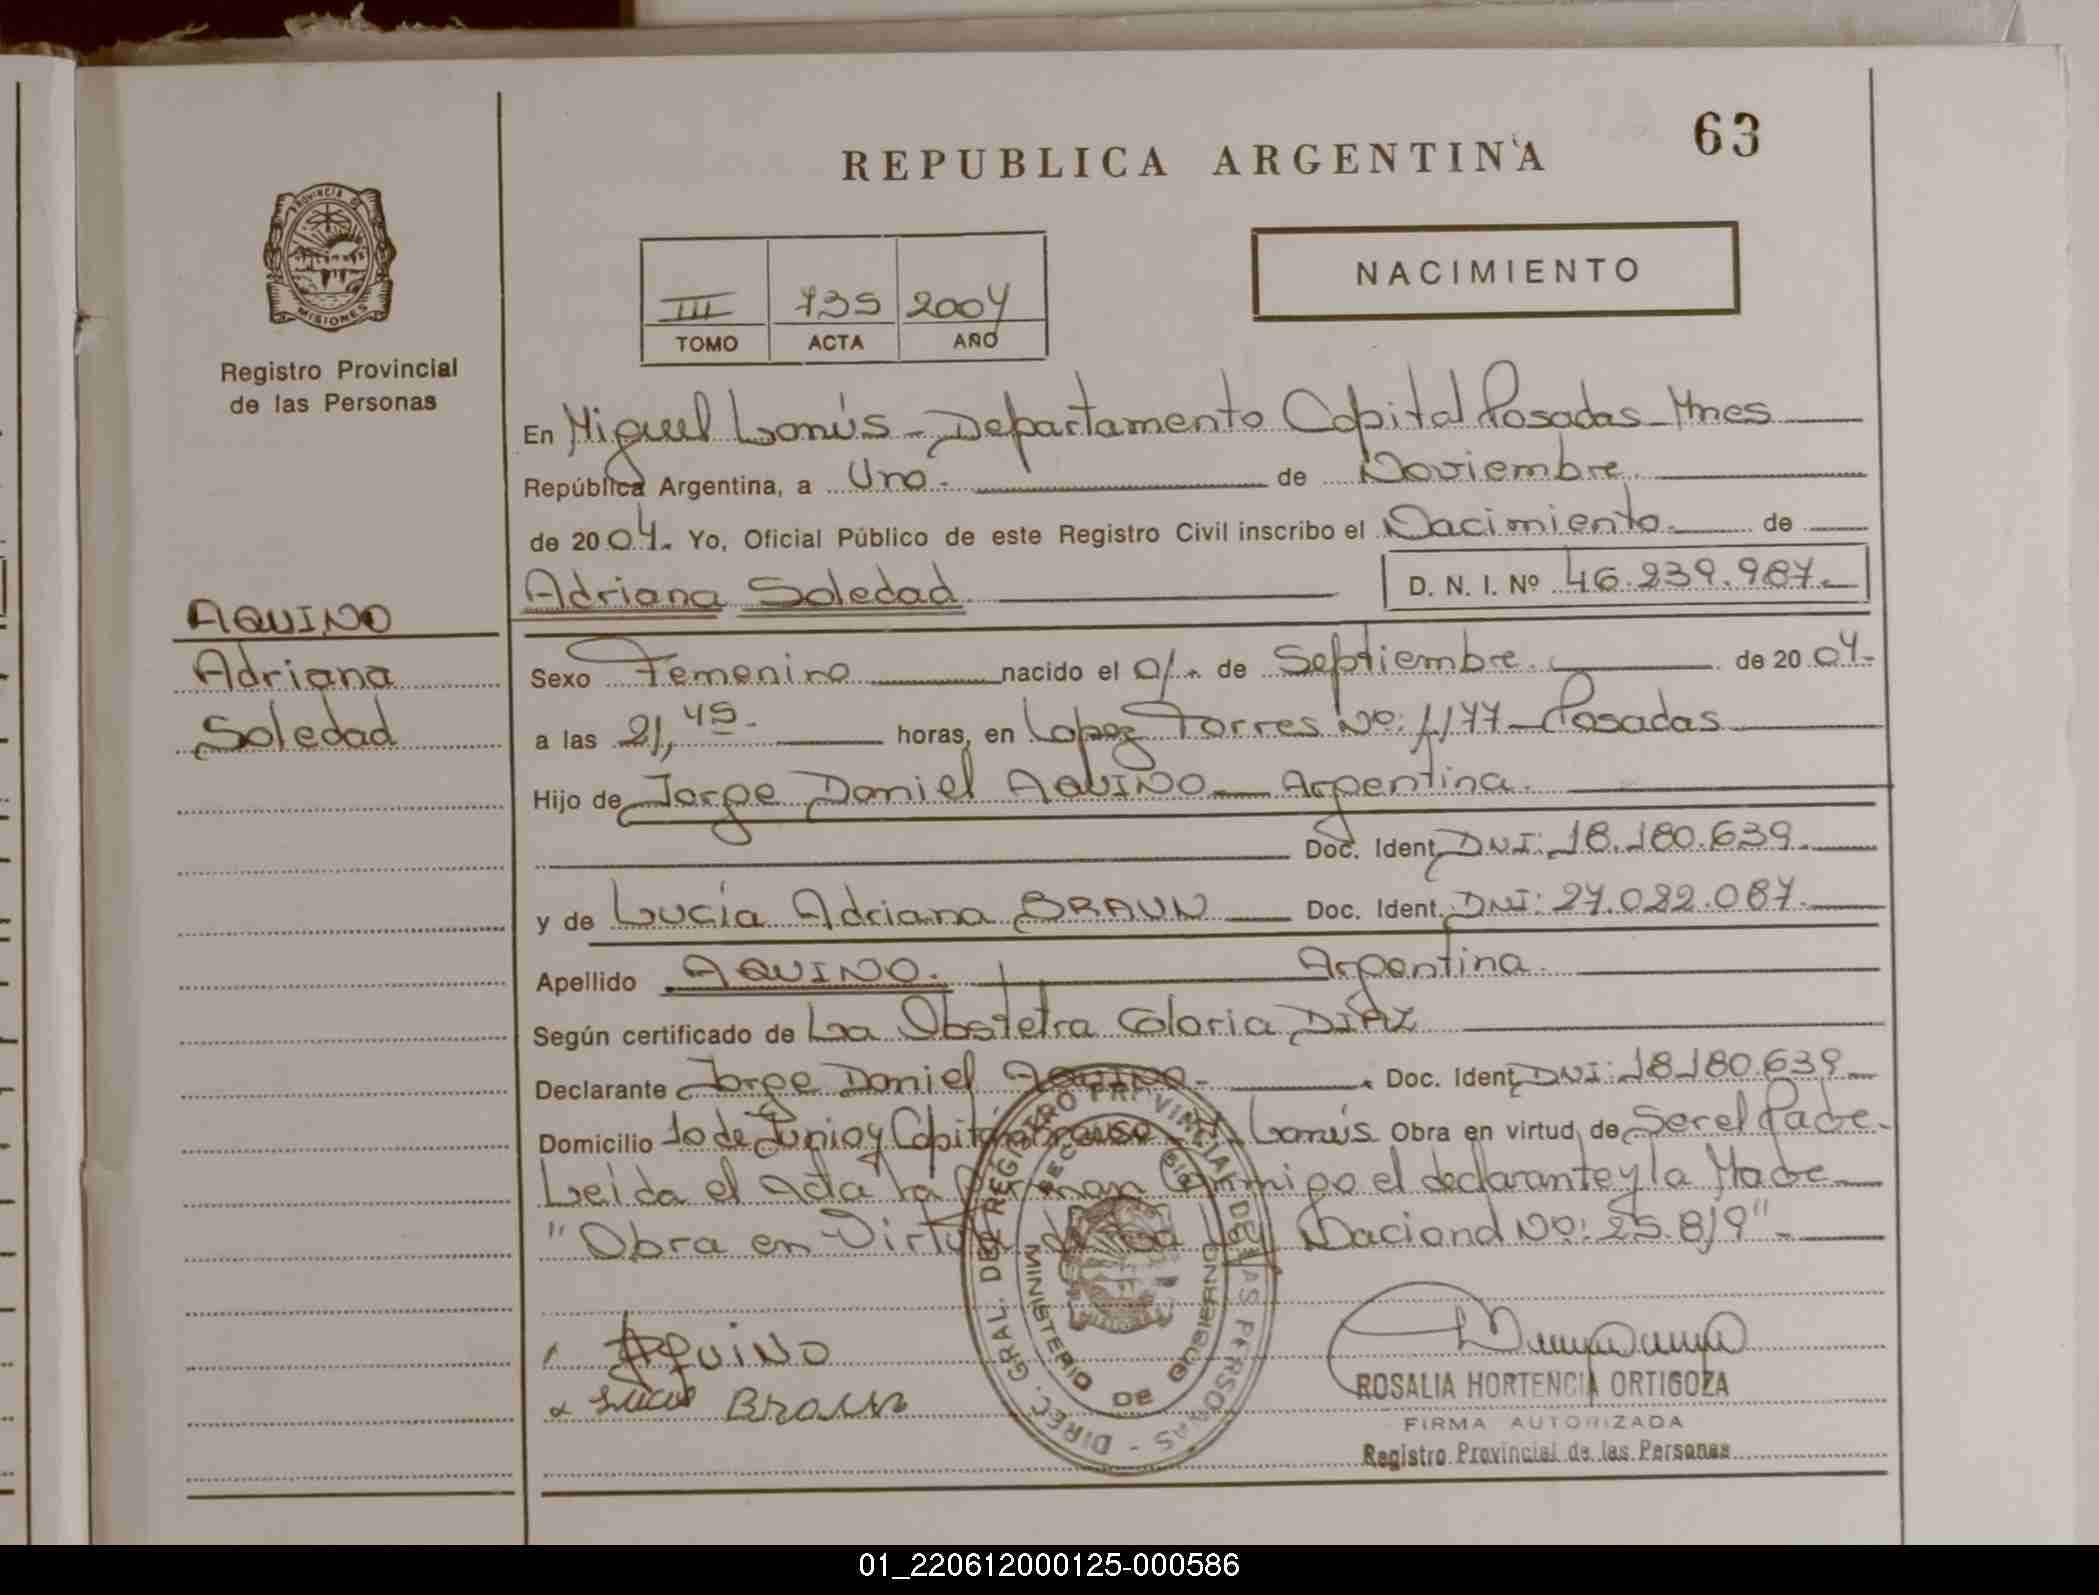 63
REPUBLICA ARGENTINA
PROVINCIA DE
MISIONES
Registro Provincial
de las Personas
NACIMIENTO
III 735 2004
TOMO ACTA AÑO
En Miguel Lanús - Departamento Capital Posadas - Mnes
República Argentina, a Uno. de Noviembre
de 2004. Yo, Oficial Público de este Registro Civil inscribo el Nacimiento de
Adriana Soledad D. N. I. Nº 46.239.987.-
AQUINO
Adriana
Soledad
Sexo Femenino nacido el 01. de Septiembre. de 2004.
a las 21,45. horas, en Lopez Torres Nº: 1177 - Posadas
Hijo de Jorge Daniel AQUINO - Argentina.
Doc. Ident. DNI: 18.180.639.
y de Lucía Adriana BRAUN Doc. Ident. DNI: 27.022.087.
Apellido AQUINO. Argentina.
Según certificado de La Obstetra DIAZ
Declarante Jorge Daniel AQUINO. Doc. Ident. DNI: 18.180.639
Domicilio 10 de Junio y Capitán Lanús Obra en virtud de Ser el Padre.
Leida el Acta la Firman Conmigo el declarante y la Madre
"Obra en Virtud de la Ley Nacional Nº: 25.819".
DIREC. GRAL. DEL REGISTRO PROVINCIAL DE LAS PERSONAS
MINISTERIO DE GOBIERNO
Aquino
Lucia Braun
ROSALIA HORTENCIA ORTIGOZA
FIRMA AUTORIZADA
Registro Provincial de las Personas
01_220612000125-000586